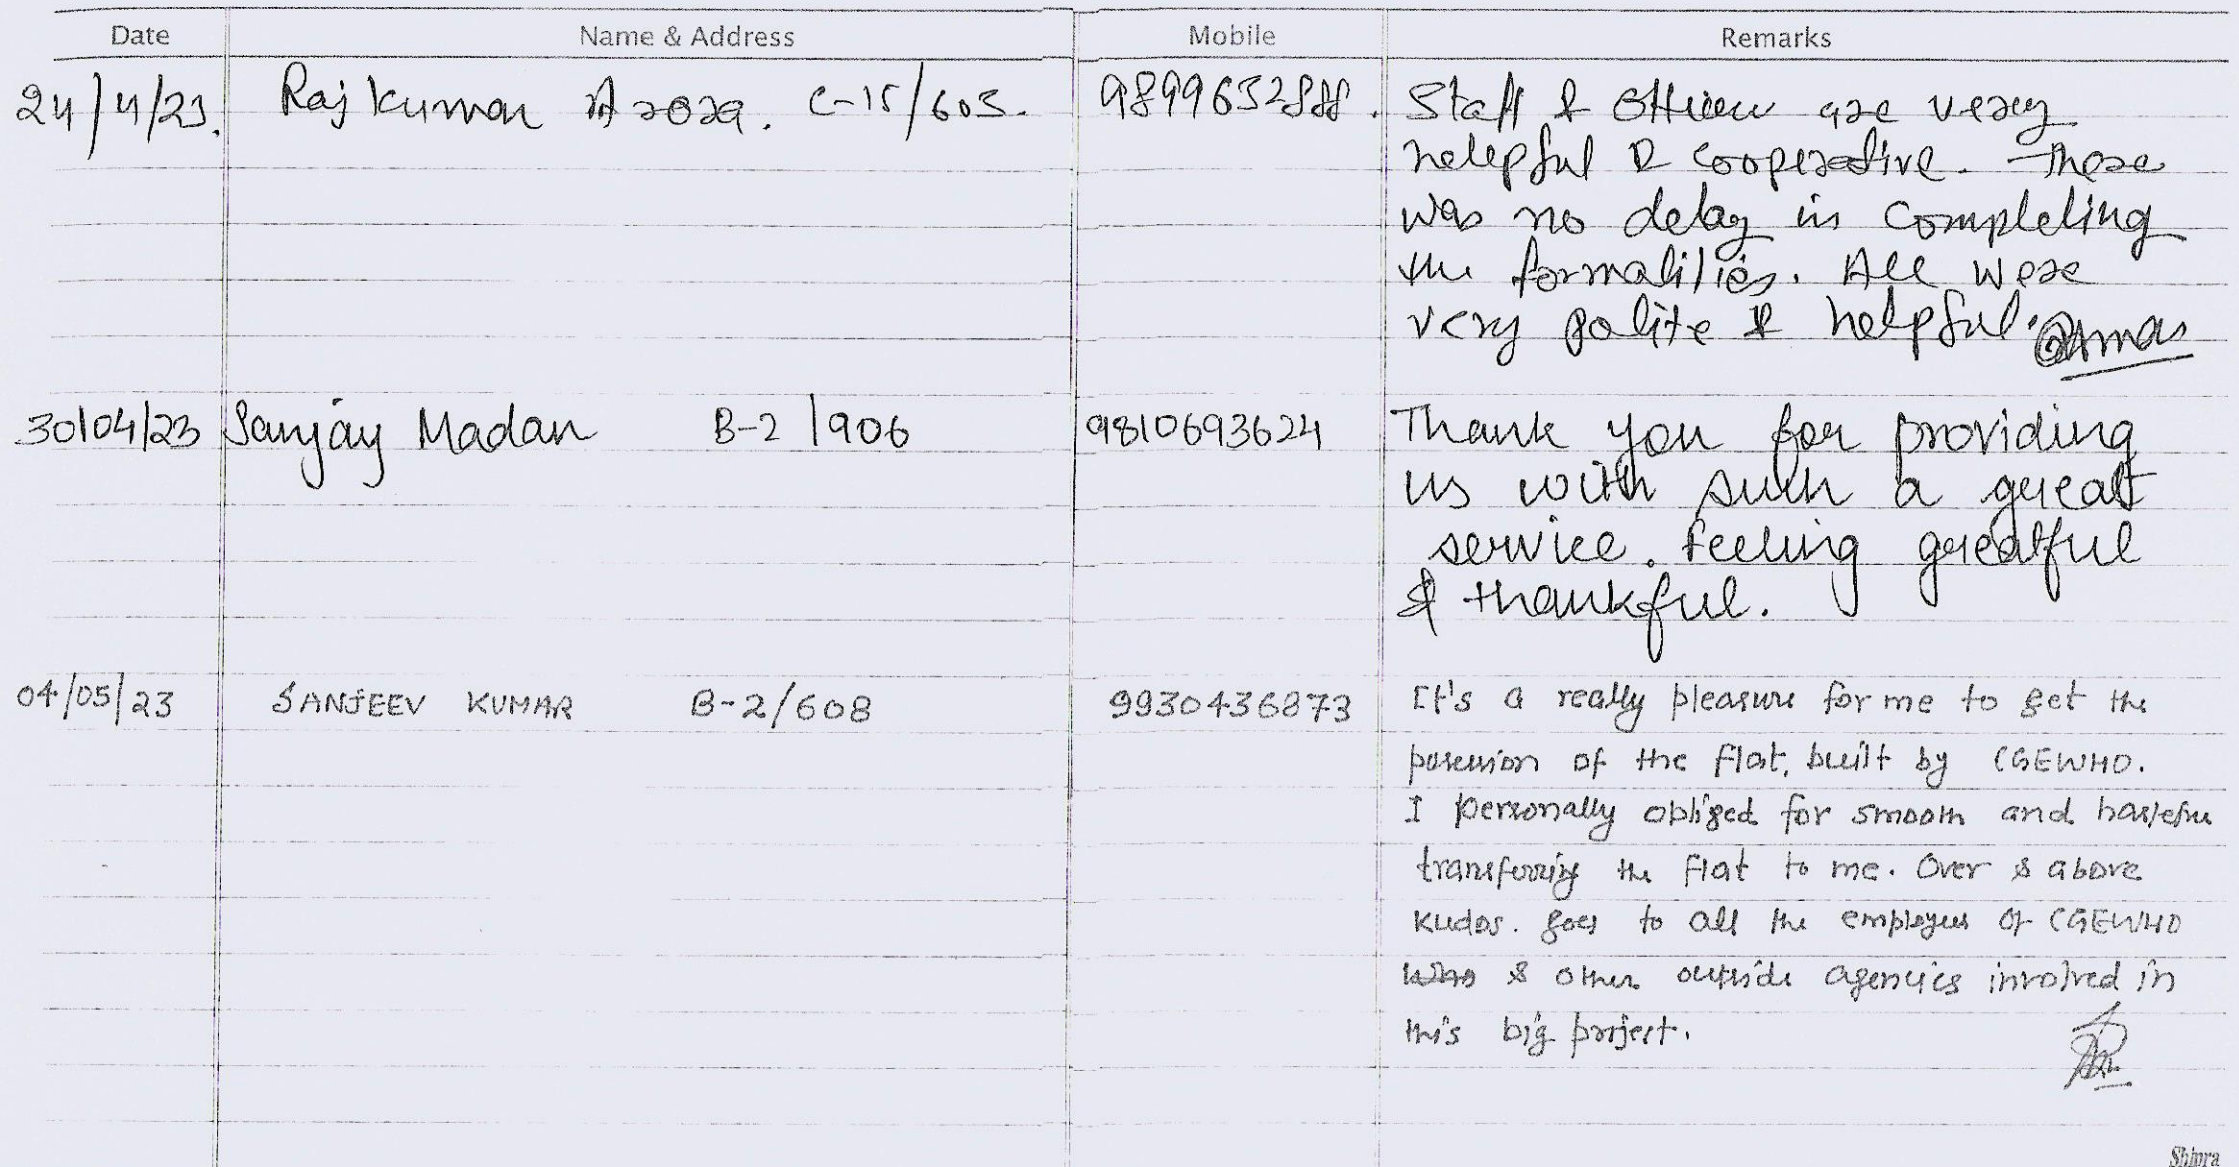 Date Name & Address Mobile Remarks
24/4/23. Raj Kumar Arora. C-15/603. 9899652888. Staff & Officer are very
helepful & Cooperative. There
was no delay in Completing
the formalities. All were
very polite & helpful.
30/04/23 Sanjay Madan B-2/906 9810693624 Thank you for providing
us with such a great
service. Feeling greatful
& thankful.
04/05/23 SANJEEV KUMAR B-2/608 9930436873 It's a really pleasure for me to get the
possession of the flat, built by CGEWHO.
I personally obliged for smooth and hasslefree
transferring the flat to me. Over & above
kudos. goes to all the employees of CGEWHO
& other outside agencies involved in
this big project.
Shipra